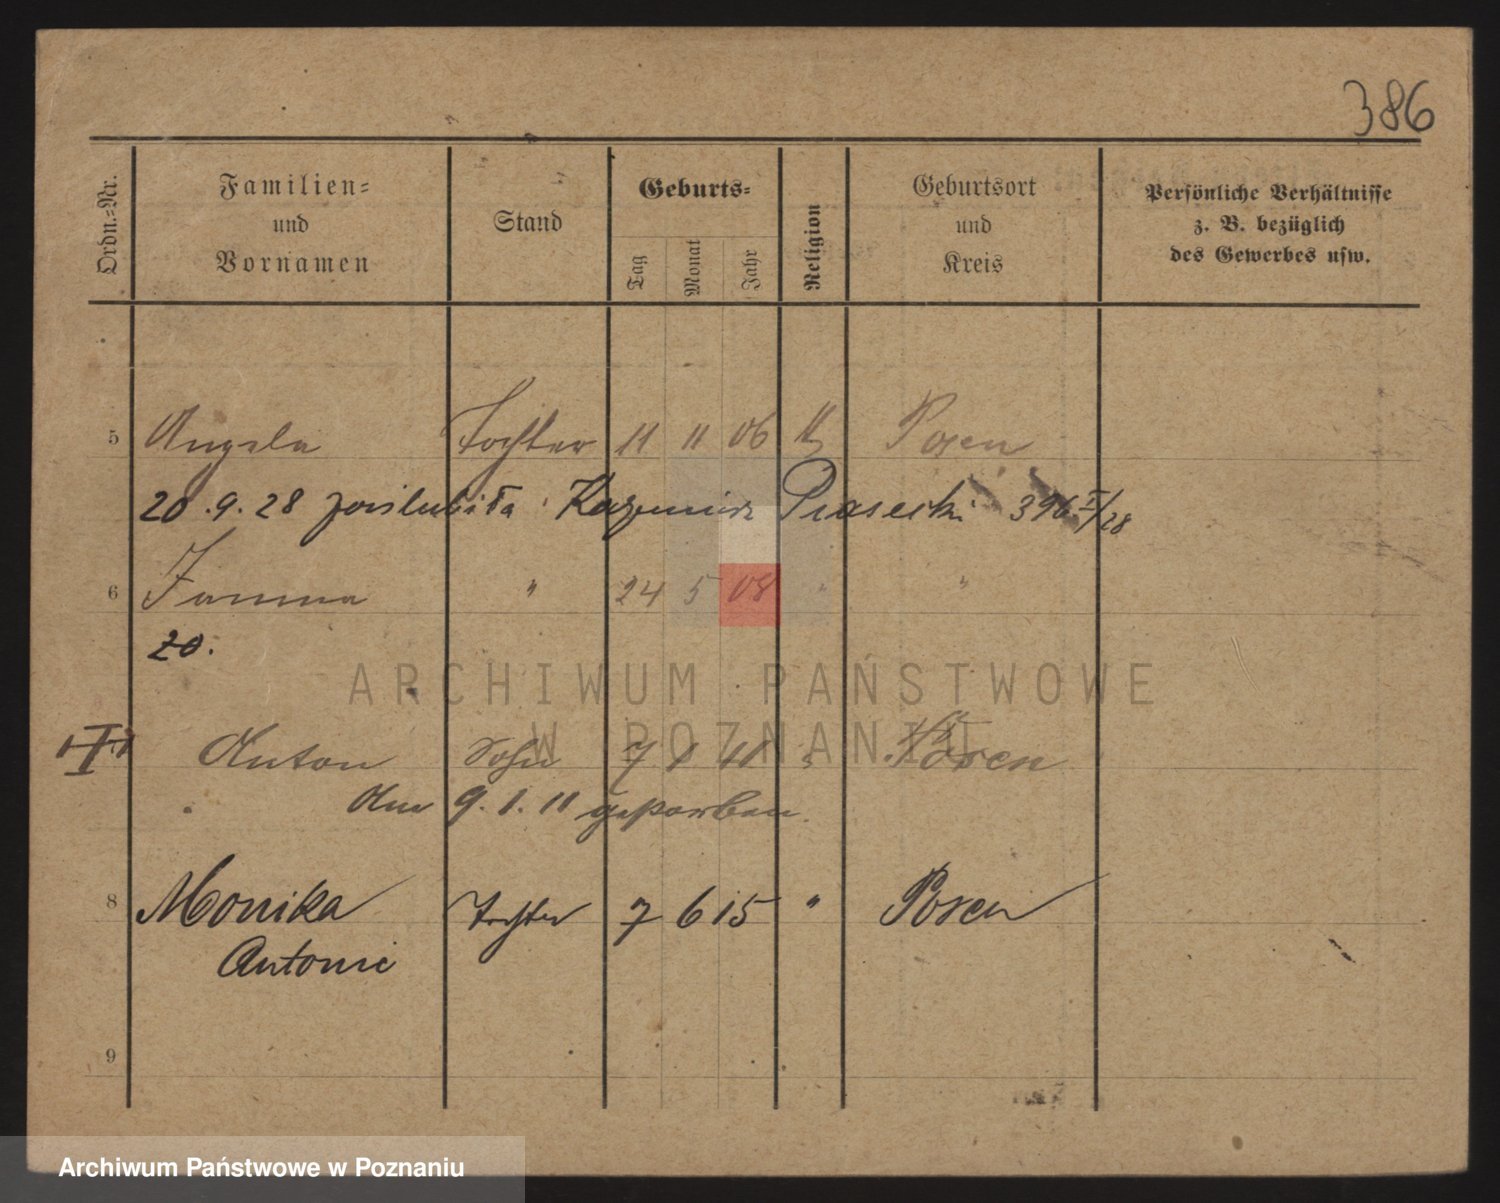 386
Ordn.=Nr.
Familien=
und
Vornamen
Stand
Geburts=
Tag
Monat
Jahr
Religion
Geburtsort
und
Kreis
Persönliche Verhältnisse
z. B. bezüglich
des Gewerbes usw.
5 Angela Tochter 11 11 06 K Posen
20.9.28 poślubiła Kazimierz Piasecki 396 I/28
6 Janina " 24 5 08 " "
20.
ARCHIWUM PAŃSTWOWE
W POZNANIU
Anton Sohn 7 1 11 " Posen
Am 9.1.11 gestorben.
8 Monika Tochter 7 6 15 " Posen
Antonie
9
Archiwum Państwowe w Poznaniu